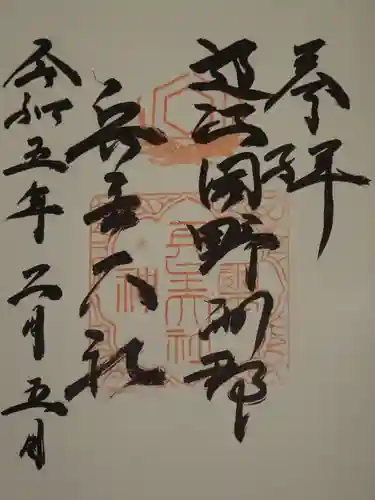 奉拝
近江国野洲郡
兵主大社
令和五年二月五日